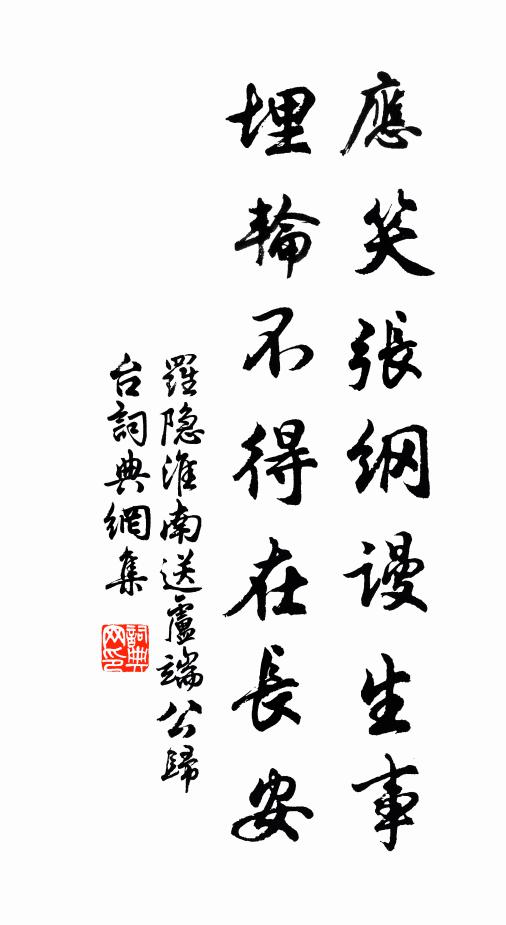 應笑張綱謾生事
埋輪不得在長安
羅隐淮南送盧端公歸
台詞典網集
詞典
网印